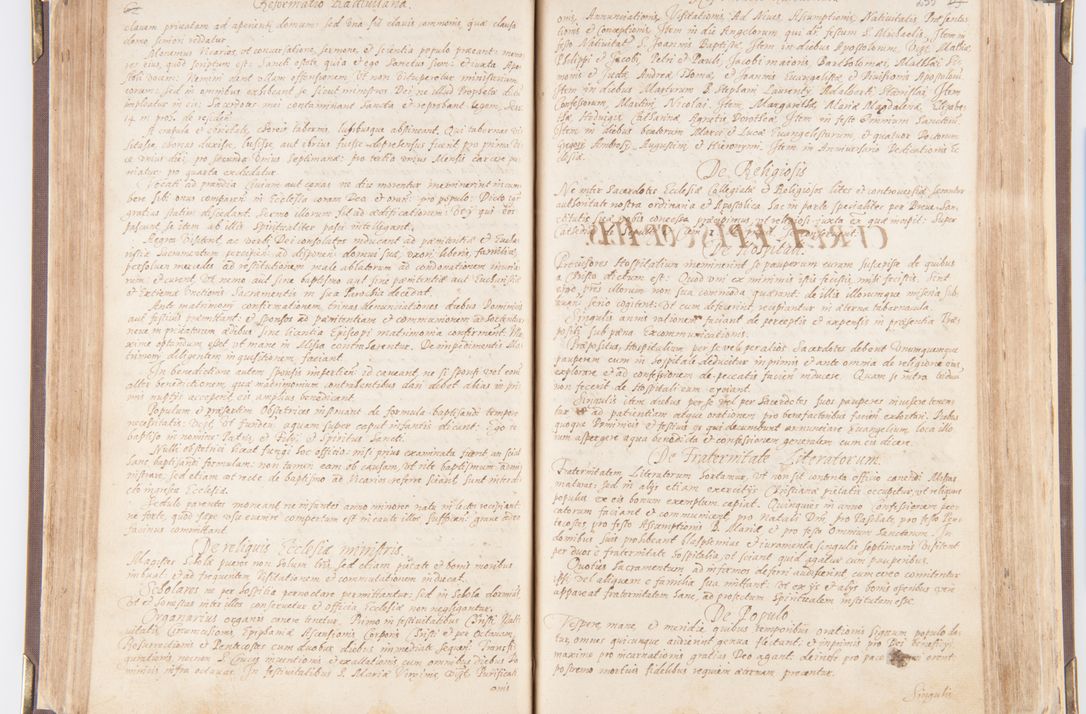 Reformatio Radziviliana.
clavem privatam ad aperiendam domum: sed una sit clavis communis, quæ clausa
domo seniori reddatur.
Moneatur Vicarios, ut conversatione, sermone, et scientia populo præeant: memo
res eius, quod scriptum est: Sancti estote, quia et ego Sanctus sum: et iuxta Apo
stoli vocem: Nemini dent ullam offensionem, ut non vituperetur ministerium
eorum: sed in omnibus exhibeant se sicut ministros Dei: ne illud Prophetæ
impleatur in eis: Sacerdotes mei contaminant Sancta et reprobant legem
A crapula et ebrietate, choreis, tabernis, lusibusque abstineant. Qui tabernas vi
sitasse, choreas duxisse, lusisse, aut ebrius fuisse deprehensus fuerit pro prima vi
ce unius diei: pro secunda unius Septimanæ: pro tertia unius Mensis carcere pu
niatur: pro quarta excludatur.
Vocati ad prandia Civium aut cænas ne diu morentur
bere sibi onus comparere in Ecclesia coram Deo et orandi pro populo: Dicto
gratias statim discedant. Sermo illorum sit ad ædificationem: Ut qui eos
pascunt se item ab illis Spiritualiter pasci intelligant.
Ægros visitent, ac verbi Dei consolatione inducant ad pænitentiam et Eucha
ristiæ Sacramentum percipiendum: ad disponendum domui suæ, uxori, liberis, familiæ,
persolvenda mercedes ad restitutionem male ablatorum ad condonationem iniuria
rum: et curent, ut nemo aut sine baptismo aut sine pænitentia aut Eucharistia
et Extremæ Unctionis Sacramentis in sua Parochia decedat.
Ante matrimonii confirmationem trinas denunciationes diebus Dominicis
aut festivis præmittant: et sponsos ad pænitentiam et communionem adhortentur
neve in privatorum ædibus sine licentia Episcopi matrimonia confirment. Ma
xime optandum esset ut mane in Missa contraherentur. De impedimentis Ma
trimonii diligentem inquisitionem faciant.
In benedictione autem sponsis impertienda caveant, ne si sponsus vel spon
altera benedictionem, quæ matrimonium contrahentibus dari debet alias in pri
mis nuptiis acceperit, eis amplius benedicant.
Populum et præsertim Obstetrices instruant de formula baptisandi tempore
necessitatis: Ut fundendo aquam super caput infantis dicant: Ego te
baptiso in nomine Patris, et Filii, et Spiritus Sancti.
Nulli obstetrici liceat fungi hoc officio, nisi prius examinata fuerit an sciat
hanc baptisandi formulam: non tamen eam ob causam, ut rite baptismum admi
nistrare, sed etiam ut recte de baptismo ad Vicarios referre sciant, Sunt interdi
cto ingressu Ecclesiæ.
Sedulo parentes moneant ne infantes anno minores natu in lectos recipiant:
ne forte, quod sæpe usu evenire compertum est incaute illos suffocando, grave
facinus committant.
De reliquis Ecclesiæ ministris.
Magister Scholæ pueros non solum litteris, sed etiam pietate et bonis moribus
imbuat, et ad frequentem visitationem et communicationem inducat.
Scholares ne per hospitia pernoctare permittantur: sed in Schola dormiant,
Ut et honestas inter illos conservetur et officia Ecclesiæ non negligantur.
Organarius organis canere tenetur. Primo in festivitatibus Christi Nati
vitatis, Circumcisionis, Epiphaniæ, Ascensionis, Corporis Christi et per Octavam,
Resurrectionis et Pentecostes cum duobus diebus immediate sequentibus Transfi
gurationis, necnon S. Crucis inventionis et exaltationis, cum omnibus diebus Do
minicis infra octavas. In festivitatibus S. Mariæ Virginis, Videlicet Purificati
onis
onis, Annunciationis, Visitationis, Ad Nives, Assumptionis, Nativitatis, Præsenta
tionis et Conceptionis. Item in die Angelorum qui dicitur festum S. Michaelis, Item in
festo Nativitatis S. Joannis Baptistæ. Item in diebus Apostolorum, Videlicet Mathiæ,
Philippi et Jacobi, Petri et Pauli, Jacobi maioris, Bartholomæi, Matthæi Si
monis et Judæ, Andreæ, Thomæ, et Joannis Evangelistæ, et Divisionis Apostolorum.
Item in diebus Martirum B. Stephani, Laurentii, Adalberti, Stanislai. Item
Confessorum, Martini, Nicolai. Item, Margarethæ, Mariæ Magdalenæ, Elizabe
thæ, Hedvigis, Catharinæ, Agnetis, Dorotheæ. Item in festo Omnium Sanctorum.
Item in diebus beatorum Marci et Lucæ Evangelistarum, et quatuor Doctorum
Gregorii, Ambrosii, Augustini et Hieronymi. Item in Anniversario Dedicationis Ec
clesiæ.
De Religiosis
Ne inter Sacerdotes Ecclesiæ Collegiatæ et Religiosos lites et controversiæ serantur
authoritate nostra ordinaria et Apostolica hac in parte specialiter per Breve San
ctitatis Suæ nobis concessa præcipimus, ut religiosi iuxta ea quæ incipit: Super
De Hospitali.
Provisores Hospitalium meminerint se pauperum curam suscepisse de quibus
a Christo dictum est: Quod uni ex minimis istis fecistis, mihi fecistis. Sint
ergo pro illorum non sua commoda quærant: de illis illorumque miseria sub
levanda serio cogitent: Ut cum defecerint, recipiantur in æterna tabernacula.
Singulis annis rationem faciant de perceptis et expensis in præsentia Præ
positi sub pæna Excommunicationis.
Præpositus Hospitalium per se vel per alios Sacerdotes debent Unumquemque
pauperem cum in hospitale deducitur inprimis et ante omnia de religione eius
explorare et ad confessionem de peccatis faciendam inducere. Quam si intra triduum
non fecerit de Hospitali eum eiiciant.
Singulis item diebus per se vel per Sacerdotes suos pauperes invisere tenean
tur et ad patientiam atque orationem pro benefactoribus faciendam exhortari. Diebus
quoque Dominicis et festivis iis qui decumbunt annunciare Evangelium loca illo
rum aspergere aqua benedicta et confessionem generalem cum eis dicere.
De Fraternitate Literatorum.
Fraternitatem Literatorum hortamur, ut non sit contenta officio canendi Missas
maturas: sed in aliis etiam exercitiis Christianæ pietatis occupetur, ut reliquus
populus ex eis bonum exemplum capiat. Quinquies in anno confessionem pec
catorum faciant et communicent, pro Natali Domini, pro Paschate, pro festo Pen
tecostes, pro festo Assumptionis B. Mariæ et pro festo Omnium Sanctorum. In
domibus suis prohibeant blasphemias et iuramenta, singulis septimanis visitent
per duos e fraternitate hospitalia, ut sciant quid agatur cum pauperibus.
Quoties Sacramentum ad infirmos deferri audiverint cum cereo comitentur
ipsi vel aliquem e familia sua mittant. Ut ex iis et aliis bonis operibus vere
appareat fraternitatem hanc, ad profectum Spiritualem institutam esse.
De Populo
Vespere mane et meridie quibus temporibus orationis Signum populo da
tur, omnes quicunque audierint genua flectant, et inprimis pro Dei beneficiis,
maxime pro incarnationis gratias Deo agant: deinde pro pace orent:
postremo mortuis fidelibus requiem æternam precentur.
Singulis